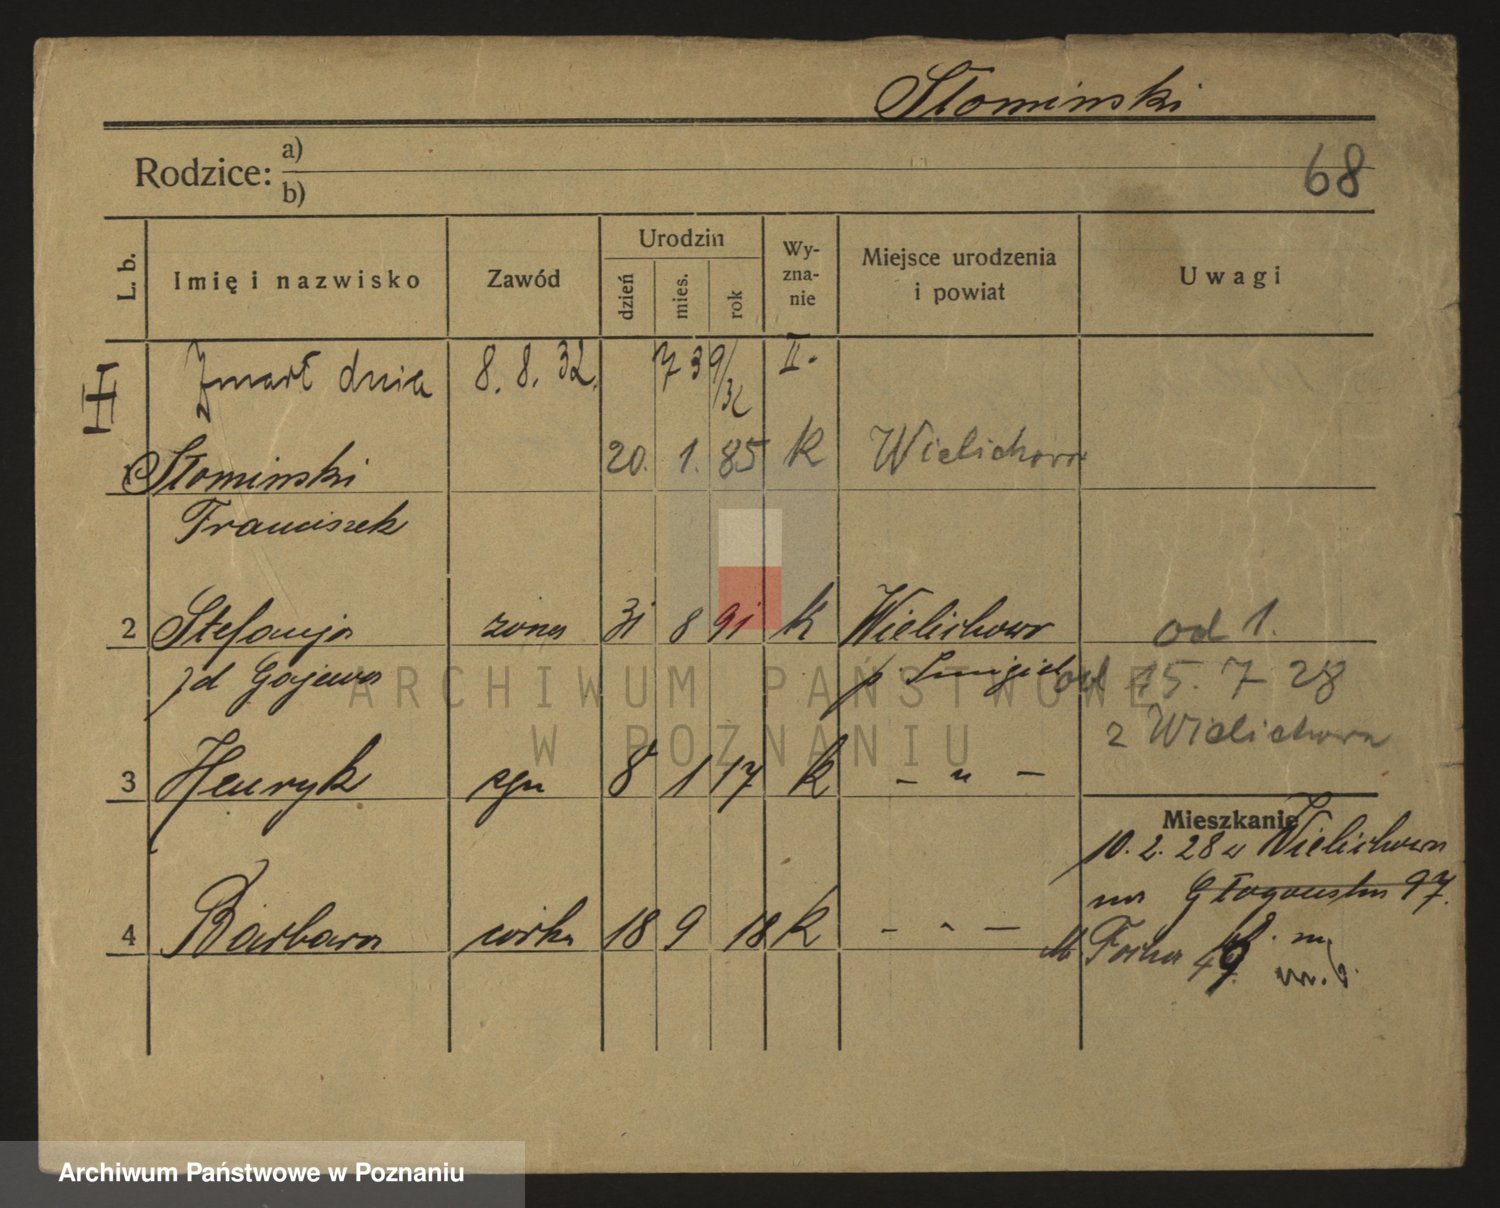 Słominski
Rodzice: a)
b)
68
L. b.
Imię i nazwisko
Zawód
Urodzin
dzień
mies.
rok
Wy-
zna-
nie
Miejsce urodzenia
i powiat
Uwagi
Zmarł dnia 8. 8. 32. 739/32 II.
1 Słominski 20. 1. 85 k Wielichowo
Franciszek
2 Stefanja żona 31 8 91 k Wielichowo od 1.
zd Gajewa p Smigiel od 15. 7 28
z Wielichowa
3 Henryk syn 8 1 17 k – " –
Mieszkanie
10. 2. 28 z Wielichowa
na Głogowska 97.
4 Barbara córka 18 9 18 k – " –
M Focha 49. m.
ARCHIWUM PAŃSTWOWE
W POZNANIU
Archiwum Państwowe w Poznaniu